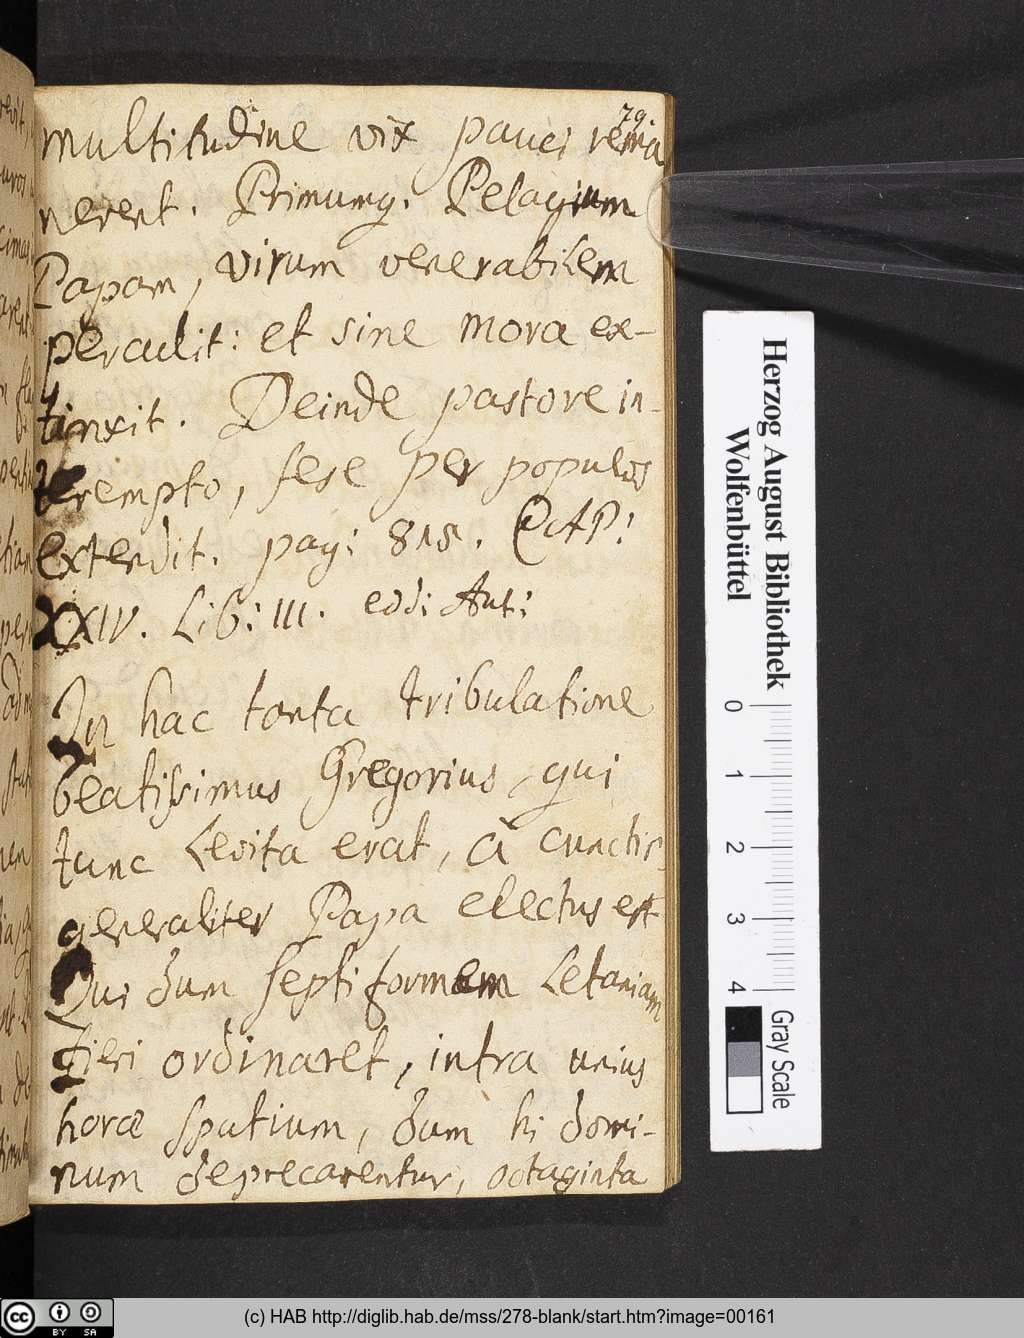 79.
multitudine vix pauci rema
nerent. Primumq. Pelagium
Papam, virum venerabilem
perculit: et sine mora ex-
tinxit. Deinde pastore in-
terempto, sese per populos
extendit. pag: 815. CAP:
XXIV. Lib: III. edd: Ant:
In hac tanta tribulatione
beatissimus Gregorius, qui
tunc Levita erat, à cunctis
generaliter Papa electus est
Qui dum septiformem Letaniam
fieri ordinaret, intra unius
horæ spatium, dum hi domi-
num deprecarentur, octaginta
Herzog August Bibliothek
Wolfenbüttel
0 1 2 3 4
Gray Scale
cc BY SA
(c) HAB http://diglib.hab.de/mss/278-blank/start.htm?image=00161